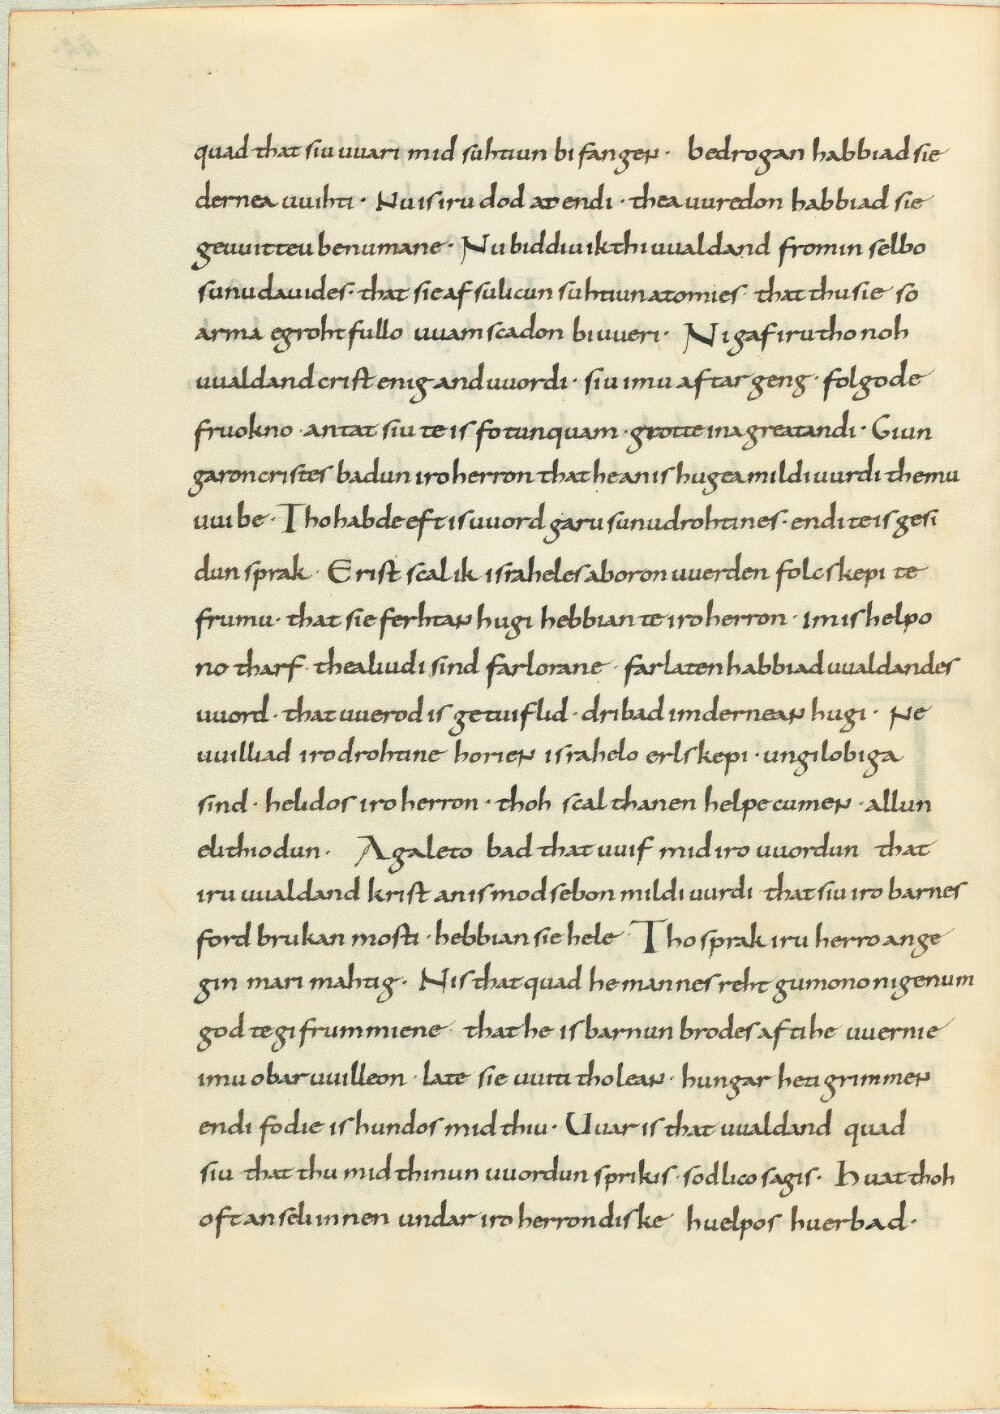 quad that siu uuari mid suhtiun bifangen · bedrogan habbiad sie
dernea uuihti · Nu is iru dod at endi · thea uuredon habbiad sie
geuuitteu benumane · Nu biddiu ik thi uualdand fro min selbo
sunu dauides · that sie af sulicun suhtiun atomies · that thu sie so
arma egrohtfullo uuamscadon biuueri · Ni gaf iru tho noh
uualdand crist enig anduuordi · siu imu aftar geng · folgode
fruokno · antat siu te is fotun quam · grotte ina greatandi · Giun
garon cristes badun iro herron that he an is hugea mildi uurdi themu
uuibe · Tho habde eft is uuord garu sunu drohtines · endi te is gesi
dun sprak · Erist scal ik israheles aboron uuerden folcskepi te
frumu · that sie ferhtan hugi hebbian te iro herron · im is helpo
no tharf · thea liudi sind farlorane · farlaten habbiad uualdandes
uuord · that uuerod is getuiflid · dribad im dernean hugi · Ne
uuilliad iro drohtine horien israhelo erlskepi · ungilobiga
sind · helidos iro herron · thoh scal thanen helpe cumen · allun
elithiodun · Agaleto bad that uuif mid iro uuordun that
iru uualdand krist an is modsebon mildi uurdi that siu iro barnes
ford brukan mosti · hebbian sie hele · Tho sprak iru herro ange
gin mari mahtig · Nis that quad he mannes reht gumono nigenum
god te gifrummiene that he is barnun brodes aftihe uuernie
imu obar uuilleon · late sie uuiti tholean · hungar hetigrimmen
endi fodie is hundos mid thiu · Uuar is that uualdand quad
siu that thu mid thinun uuordun sprikis · sodlico sagis · Huat thoh
oft an seli innen undar iro herron diske huelpos huerbad ·